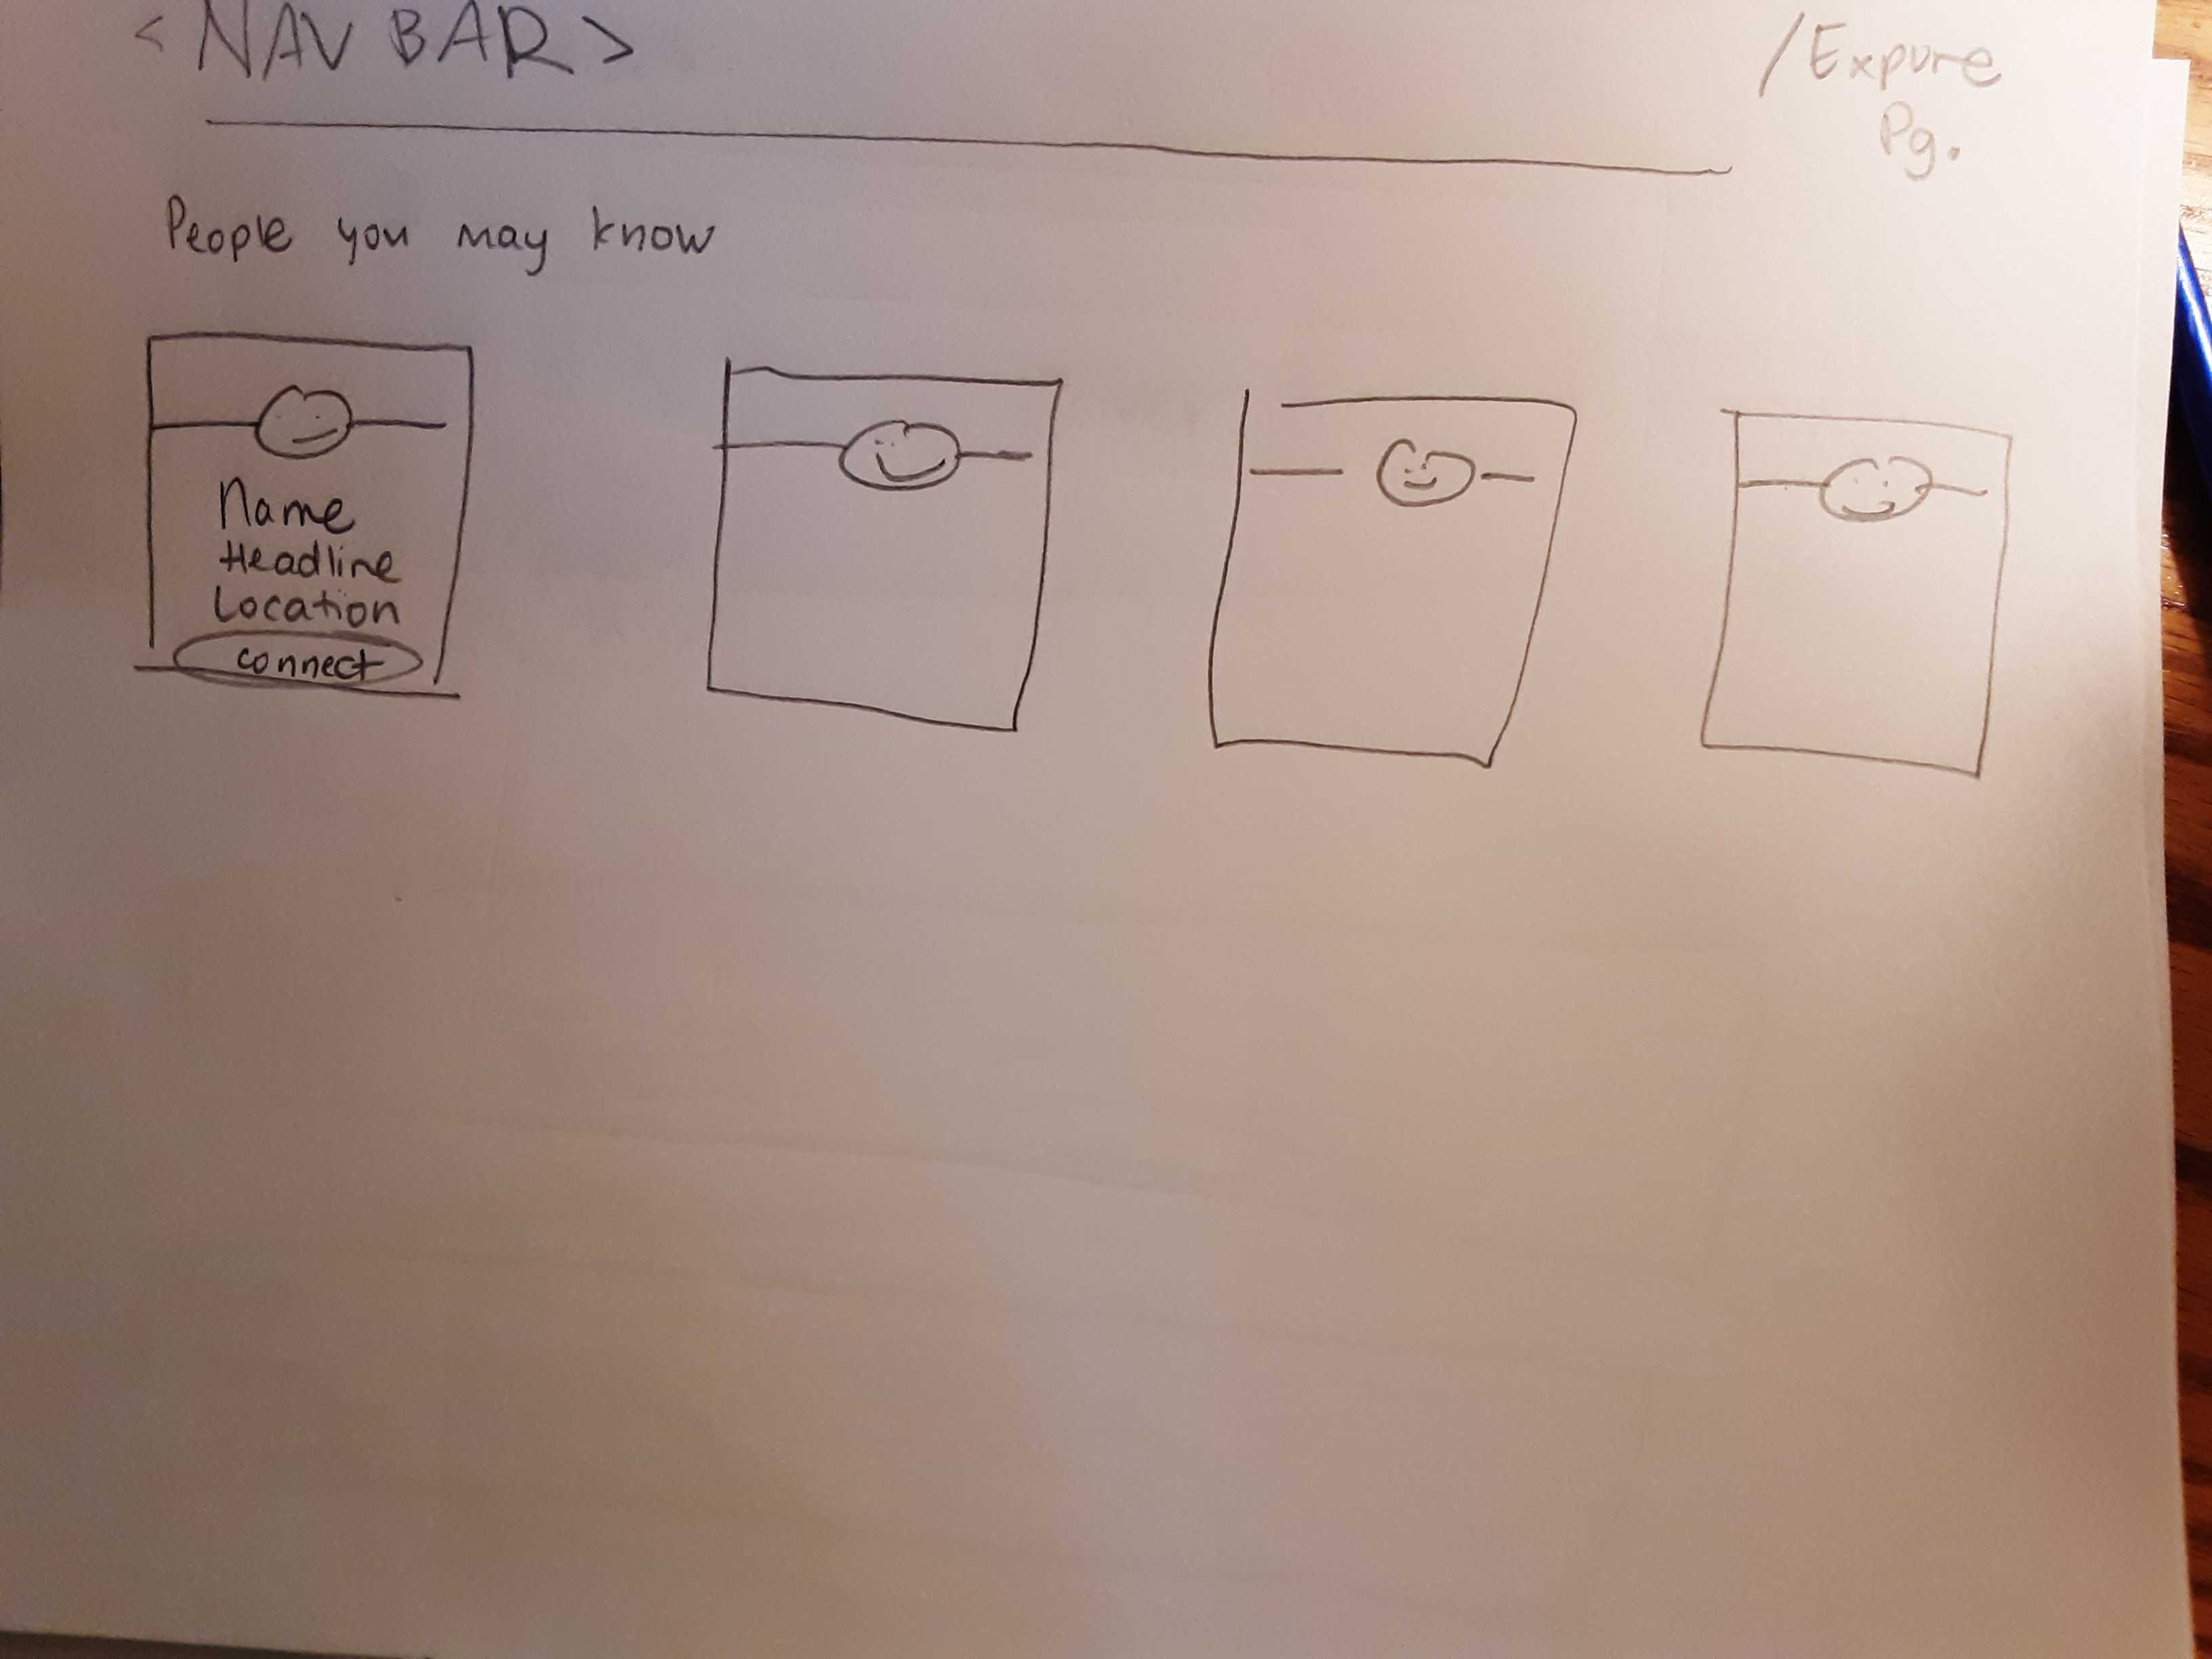 < NAV BAR >
/Expore
Pg.
People you may know
Name
Headline
Location
connect